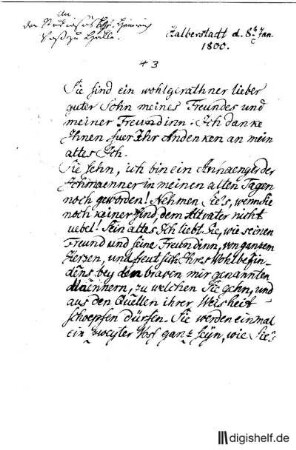 An
den Studiosus Chr. Heinrich
Voß zu Halle.
Halberstatt d. 8t Jan.
1800.
+3
Sie sind ein wohlgerathner lieber
guter Sohn meines Freundes und
meiner Freundinn. Ich danke
Ihnen fuer Ihr Andenken an mein
altes Ich.
Sie sehn, ich bin ein Annaenger der
Ichmaenner in meinen alten Tagen
noch geworden! Nehmen Sie's, wenn Sie
noch keiner sind, dem Altvater nicht
uebel! Sein altes Ich liebt Sie, wie seinen
Freund und seine Freundinn, von ganzem
Herzen, und freut sich Ihres Wohlbefin-
dens bey den braven mir genannten
Männern, zu welchen Sie gehn, und
aus den Quellen ihrer Weisheit
schoepfen dürfen. Sie werden einmal
ein zweyter Voß ganz seyn, wie Sie's
digishelf.de